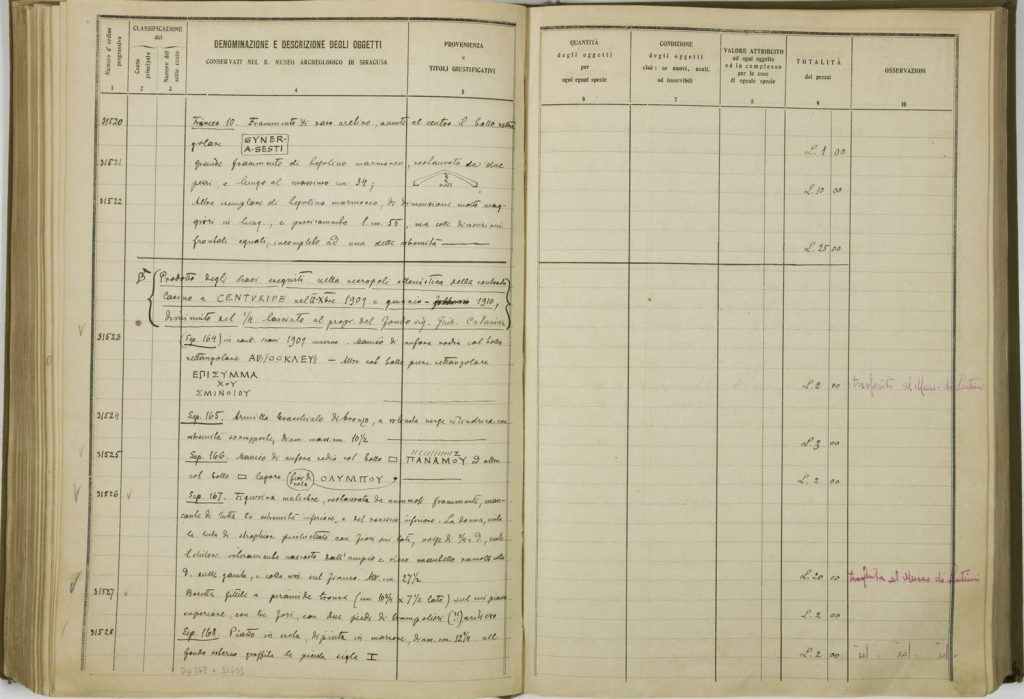 Numero d'ordine progressivo
CLASSIFICAZIONE
del
Conto principale
Numero del sotto conto
DENOMINAZIONE E DESCRIZIONE DEGLI OGGETTI
CONSERVATI NEL R. MUSEO ARCHEOLOGICO DI SIRACUSA
PROVENIENZA
e
TITOLI GIUSTIFICATIVI
1 2 3 4 5
QUANTITÀ
degli oggetti
per
ogni egual specie
CONDIZIONE
degli oggetti
cioè: se nuovi, usati,
od inservibili
VALORE ATTRIBUITO
ad ogni oggetto
ed in complesso
per le cose
di eguale specie
TOTALITÀ
dei prezzi
OSSERVAZIONI
6 7 8 9 10
31520 10. Frammento di vaso aretino, avente al centro il bollo
golare SYNER-
A·SESTI
L. 1 00
31521 grande frammento di lepolino marmoreo, restaurato da due
pezzi, e lungo al massimo cm. 34;
L. 10 00
31522 Altro esemplare di lepolino marmoreo, di dimensioni molto mag-
giori in lung., e precisamente 1 cm. 55, ma colle dimensioni
frontali eguali, incompleto ad una delle estremità
L. 25 00
Prodotto degli scavi eseguiti nella necropoli ellenistica della contrada
Casino a CENTURIPE nel 1909 e gennaio - 1910,
diminuito del 1/4 lasciato al propr. del fondo sig.
31523 Sep. 164) in cont. scavi 1909 inverno. Manico di anfora rodia col bollo
rettangolare - Altro col bollo pure rettangolare
ΕΠΙΣΥΜΜΑ
ΧΟΥ
ΣΜΙΝΘΙΟΥ
L. 2 00 trasferito al Museo di Lentini
31524 Sep. 165. Armilla bracchiale di bronzo, a rotonda verga cilindrica con
estremità sovrapposte, diam. mass. cm. 10 1/2
L. 3 00
31525 Sep. 166. Manico di anfora rodia col bollo ΠΑΝΑΜΟΥ altro
col bollo logoro fior di rosa ΟΛΥΜΠΟΥ
L. 2 00
31526 Sep. 167. Figurina muliebre, restaurata da numerosi frammenti, man-
cante di tutta la estremità inferiore e del rovescio inferiore. La donna,
la testa di strophion con fiori sui lati, volge di 3/4 a D,
chitone interamente nascosto dall'ampio e ricco mantello raccolto colla
d. sulle gambe, e colla sin. sul fianco. Alt. cm. 27 1/2
L. 20 00 trasferita al Museo di Lentini
31527 Basetta fittile a piramide tronca (cm. 10 3/4 x 7 1/2 lato) sul cui piano
superiore, con tre fori, con due piedi di trampolieri (?)
L. 2 00
31528 Sep. 168. Piatto in creta, dipinto in marrone, diam. cm. 12 1/4 nel
fondo esterno graffita la piccola sigla I
L. 2 00